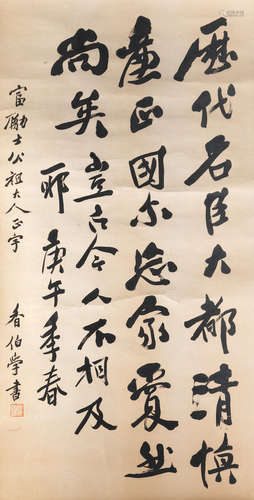 歷代名臣大都清慎
正國尔忘家夐然
尚矣豈古今人不相及
耶庚午季春
富勵士公祖大人正字
伯學書